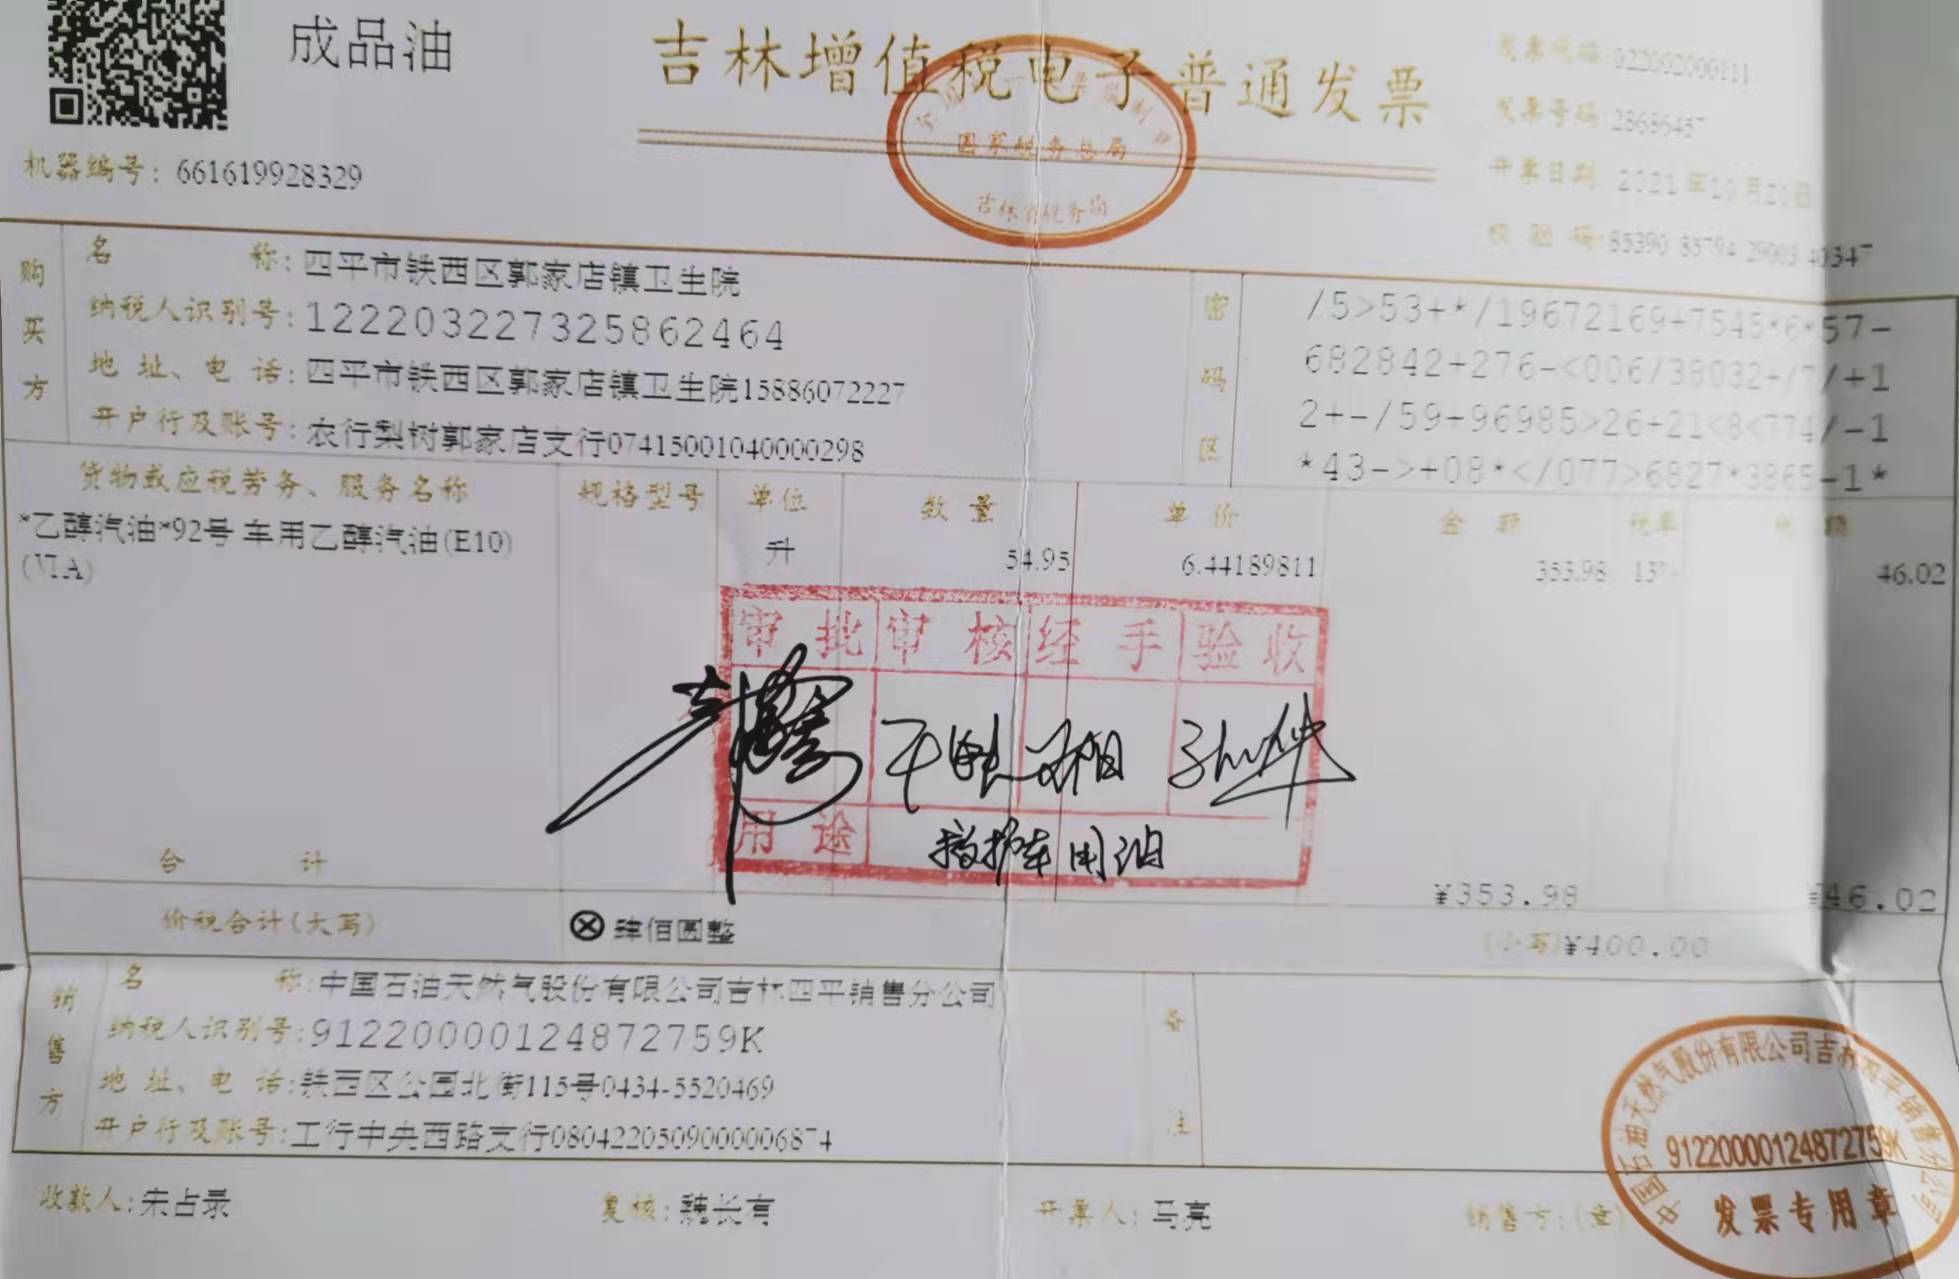 成品油
吉林增值税电子普通发票
国家税务总局
吉林省税务局
发票代码:022002000111
发票号码:28686457
开票日期:2021年10月20日
校验码:85390 35794 29003 40347
机器编号:661619928329
购买方
名称:四平市铁西区郭家店镇卫生院
纳税人识别号:122203227325862464
地址、电话:四平市铁西区郭家店镇卫生院15886072227
开户行及账号:农行梨树郭家店支行07415001040000298
密码区
/5>53+*/19672169+7545*6*57-
682842+276-<006/38032+/7/+1
2+-/59+96985>26+21<8<774/-1
*43->+08*</077>6827*3865-1*
货物或应税劳务、服务名称 规格型号 单位 数量 单价 金额 税率 税额
*乙醇汽油*92号 车用乙醇汽油(E10) 升 54.95 6.44189811 353.98 13% 46.02
(VIA)
审批 审核 经手 验收
用途 救护车用油
合计 ¥353.98 ¥46.02
价税合计(大写) ⊗肆佰圆整 (小写)¥400.00
销售方
名称:中国石油天然气股份有限公司吉林四平销售分公司
纳税人识别号:91220000124872759K
地址、电话:铁西区公园北街115号0434-5520469
开户行及账号:工行中央西路支行0804220509000006874
备注
收款人:宋占录 复核:魏长有 开票人:马亮 销售方:(章)
中国石油天然气股份有限公司吉林四平销售分公司
91220000124872759K
发票专用章